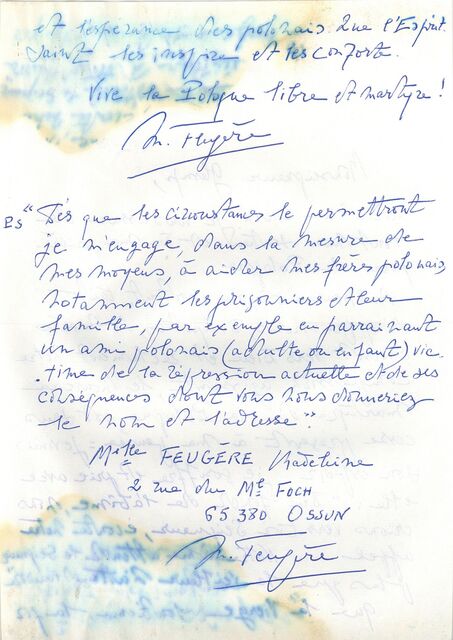 et l'espérance des polonais Que l'Esprit.
Saint les inspire et les confort.
Vive la Pologne libre et martyre !
M. Feugère
PS "Dès que les circonstances le permettront
je m'engage, dans la mesure de
mes moyens, à aider mes frères polonais,
notamment les prisonniers et leur
famille, par exemple en parrainant
un ami polonais (adulte ou enfant) vic-
-time de la répression actuelle et de ses
conséquences dont vous nous donneriez
le nom et l'adresse".
Melle FEUGÈRE Madeleine
2 rue du Mal FOCH
65380 OSSUN
M. Feugère